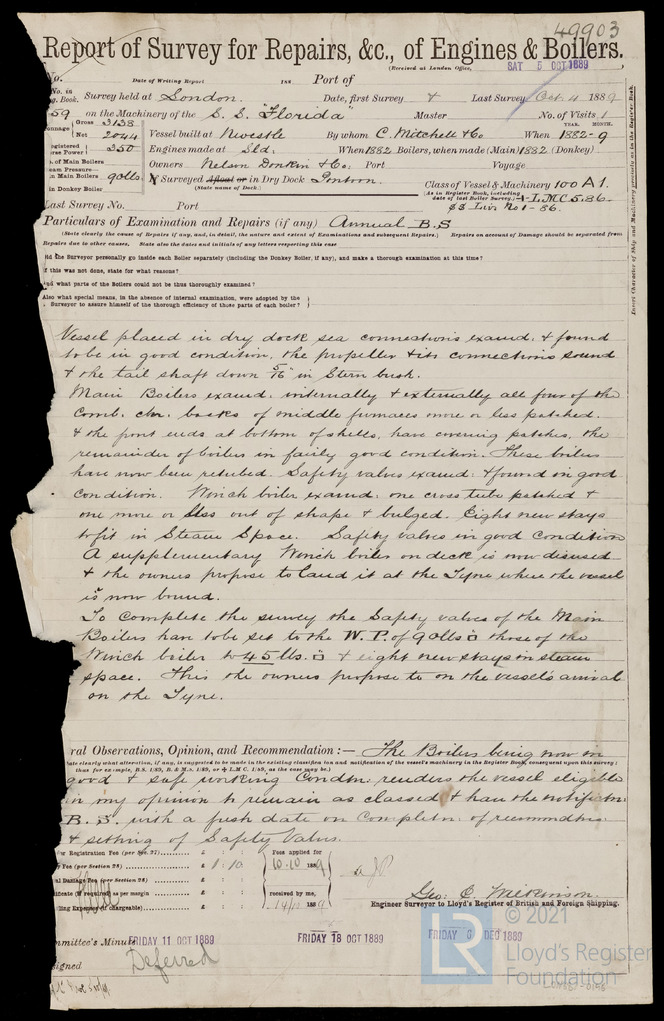 49903
Report of Survey for Repairs, &c., of Engines & Boilers.
(Received at London Office, SAT 5 OCT 1889
No. Date of Writing Report 188 Port of
No. in Survey held at London. Date, first Survey & Last Survey Oct 4 1889
g. Book.
59 on the Machinery of the S. S. "Florida" Master No. of Visits 1
Gross 3138 YEAR. MONTH.
Tonnage Net 2044 Vessel built at Newcstle By whom C. Mitchell & Co When 1882-9
Registered Horse Power 350 Engines made at Sld. When 1882 Boilers, when made (Main) 1882 (Donkey)
. of Main Boilers Owners Nelson Donkin & Co. Port Voyage
eam Pressure
in Main Boilers 90lbs. If Surveyed Afloat or in Dry Dock Class of Vessel & Machinery 100 A1.
in Donkey Boiler (State name of Dock.) (As in Register Book, including date of last Boiler Survey.) L.M.C. 5.86.
Last Survey No. Port No 1 - 86.
Particulars of Examination and Repairs (if any) Annual B.S
(State clearly the cause of Repairs if any, and, in detail, the nature and extent of Examinations and subsequent Repairs.) Repairs on account of Damage should be separated from
Repairs due to other causes. State also the dates and initials of any letters respecting this case
Did the Surveyor personally go inside each Boiler separately (including the Donkey Boiler, if any), and make a thorough examination at this time?
If this was not done, state for what reasons?
And what parts of the Boilers could not be thus thoroughly examined?
Also what special means, in the absence of internal examination, were adopted by the
Surveyor to assure himself of the thorough efficiency of those parts of each boiler?
Vessel placed in dry dock sea connections examd. & found
to be in good condition, the propeller & its connections sound
& the tail shaft down 5/16" in Stern bush.
Main Boilers examd: internally & externally all four of the
Comb. chr. backs of middle furnaces more or less patched.
& the front ends at bottom of shells, have covering patches, the
remainder of boilers in fairly good condition. These boilers
have now been retubed. Safety valves examd: & found in good
condition. Winch boiler examd: one cross tube patched &
one more or less out of shape & bulged. Eight new stays
to fit in Steam Space. Safety valves in good Condition
A supplementary Winch boiler on deck is now disused
& the owners propose to land it at the Tyne where the vessel
is now bound.
To complete the survey the Safety valves of the Main
Boilers have to be set to the W.P. of 90lbs □ those of the
Winch boiler to 45 lbs. □ & eight new stays in steam
space. This the owners propose to on the vessel's arrival
on the Tyne.
ral Observations, Opinion, and Recommendation :— The Boilers being now in
ate clearly what alteration, if any, is suggested to be made in the existing classification and notification of the vessel's machinery in the Register Book, consequent upon this survey;
thus for example, B.S. 1/89, B. & M.S. 1/89, or L.M.C. 1/89, as the case may be.)
good & safe working Condtn: renders the vessel eligible
in my opinion to remain as classed & have the notificatn:
B. S. with a fresh date on Completn: of recommdtns:
& setting of Safety Valves.
or Registration Fee (per Sec. 27) £ : : Fees applied for
Fee (per Section 28) £ 1 : 10 10.10 1889
al Damage Fee (per Section 28) £ : :
ificate (if required) as per margin £ : : received by me,
lling Expenses (if chargeable) £ : : 14/10 1889
Geo: C. Wilkinson.
Engineer Surveyor to Lloyd's Register of British and Foreign Shipping.
mmittee's Minute FRIDAY 11 OCT 1889 FRIDAY 18 OCT 1889 FRIDAY 6 DEC 1889
signed Deferred
Insert Character of Ship and Machinery precisely as in the Register Book.
LR
© 2021
Lloyd's Register
Foundation